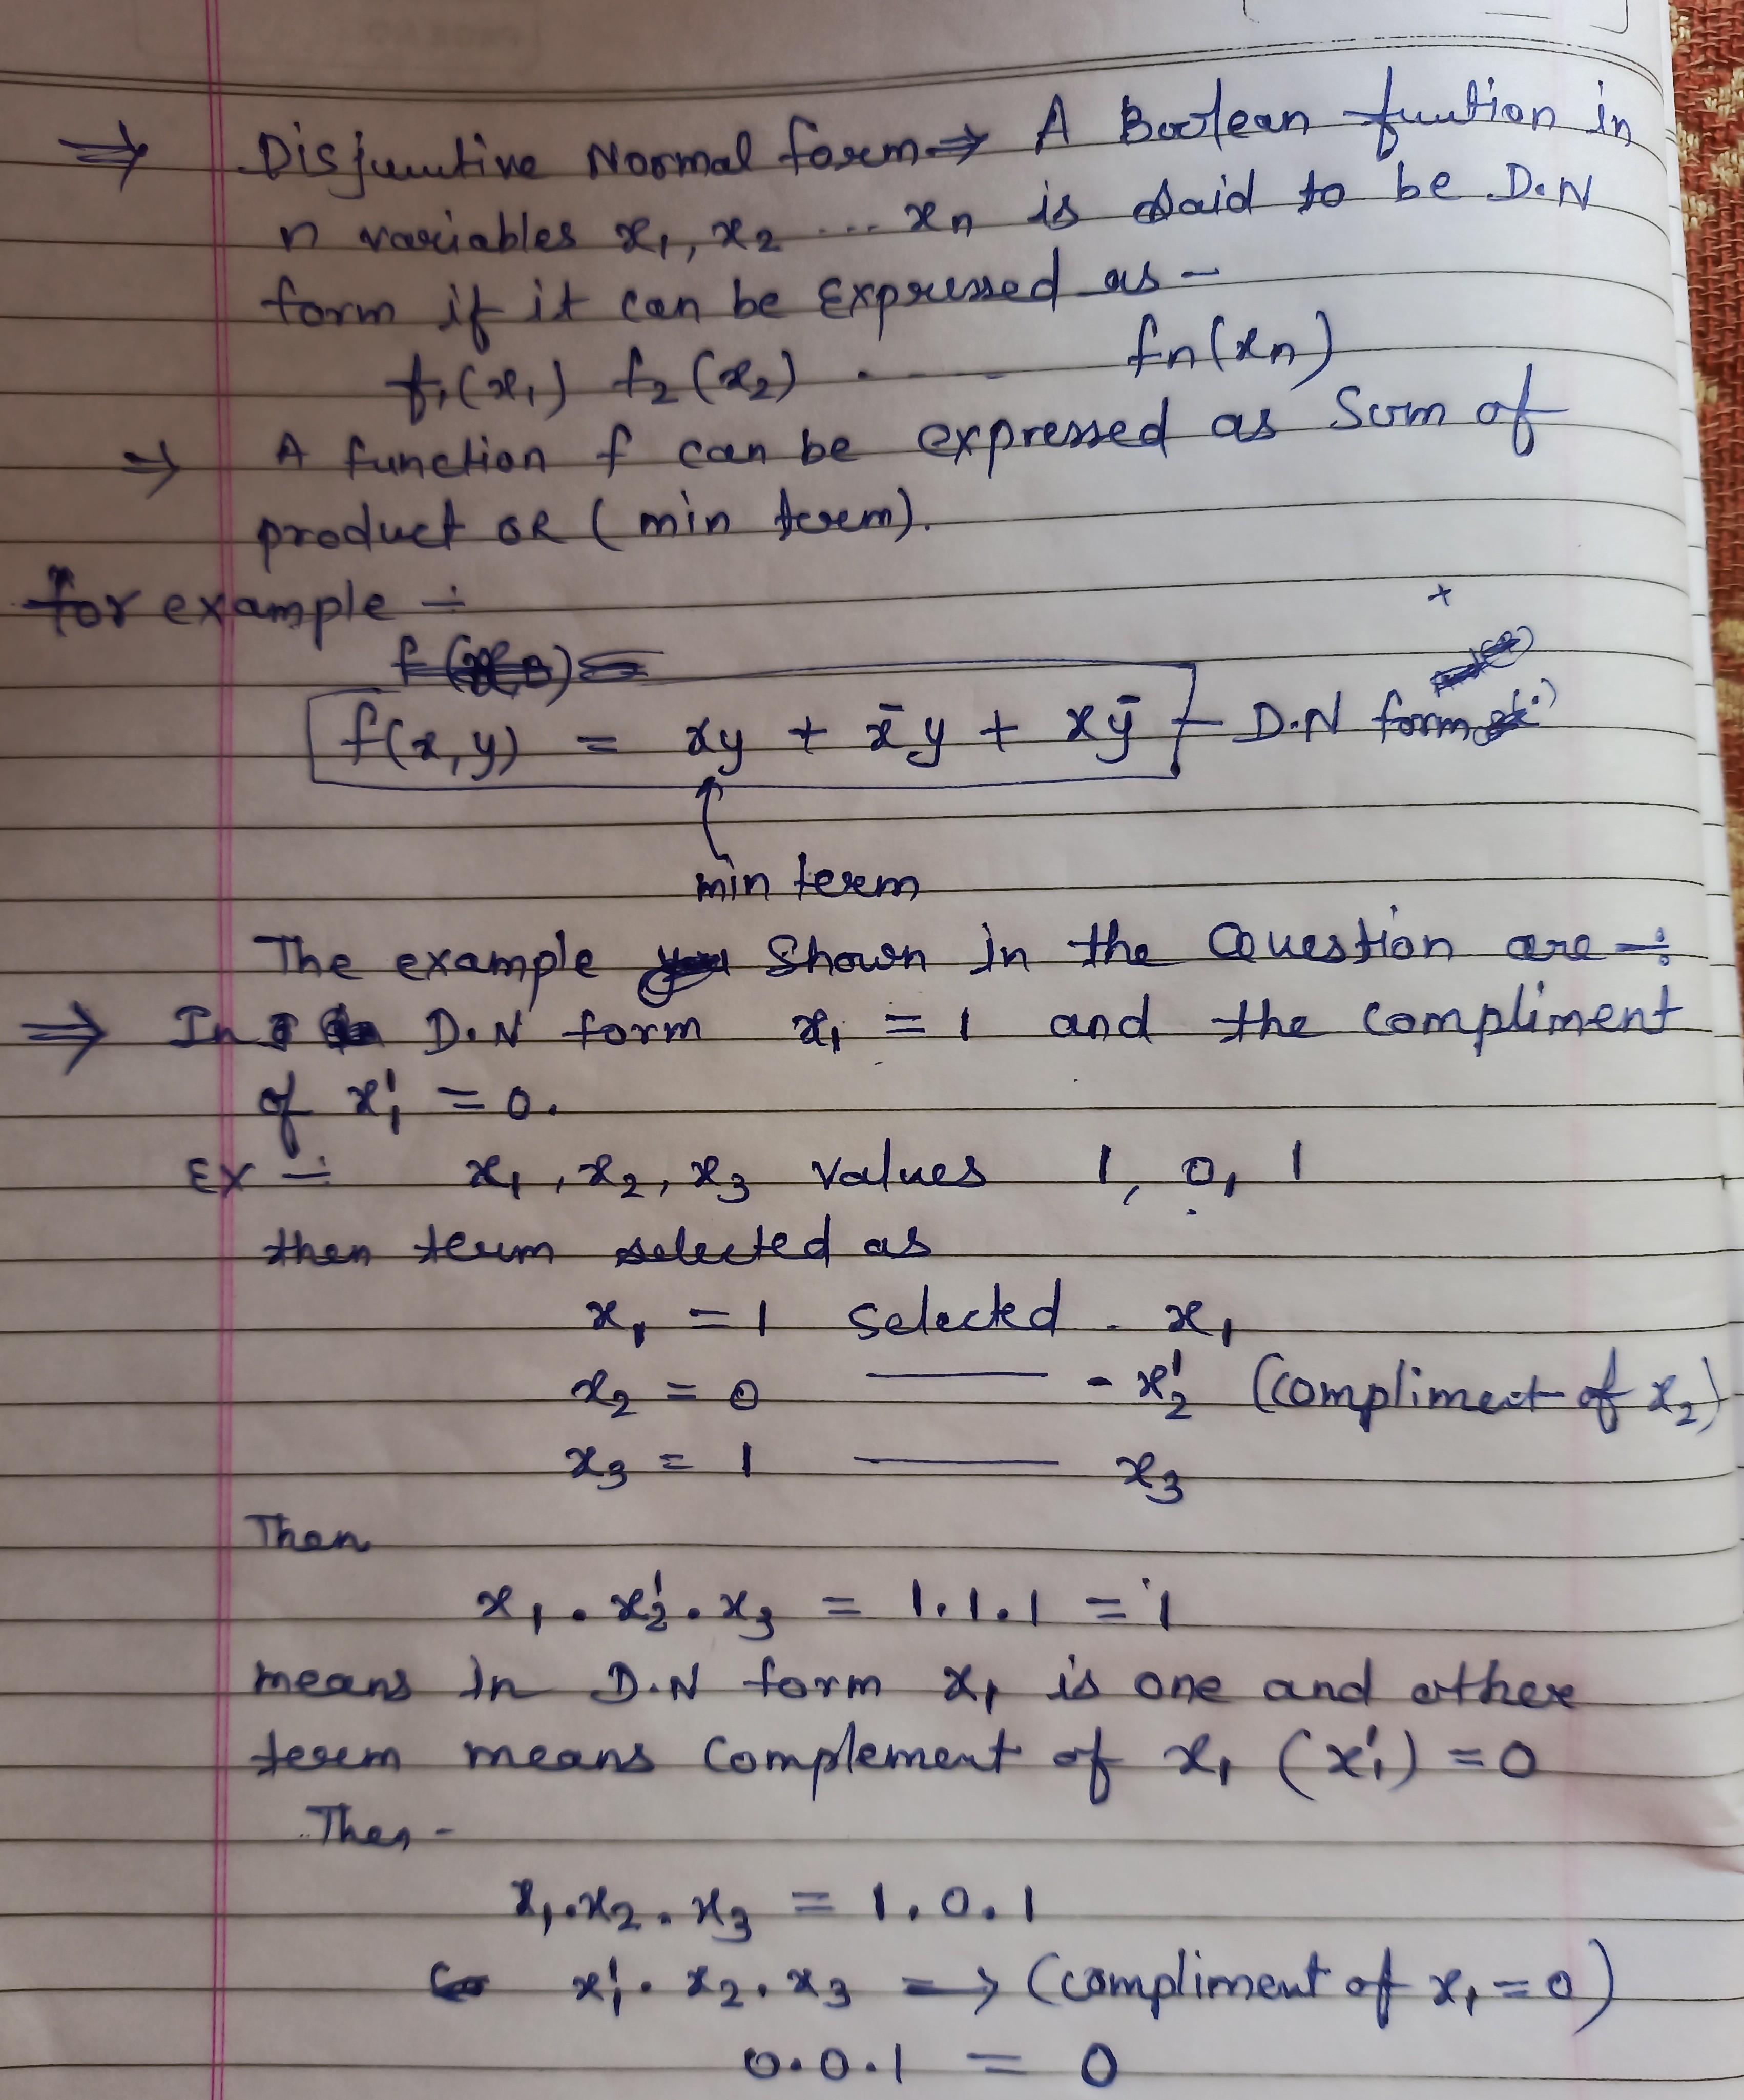 ⇒ Disjunctive Normal form ⇒ A Boolean function in
n variables x₁, x₂ ... xₙ is said to be D.N
form if it can be Expressed as -
f₁(x₁) f₂(x₂) . - - - fₙ(xₙ)
⇒ A function f can be expressed as Sum of
product OR (min term).
for example ÷
+
f(x,y) = xy + x̄y + xȳ - D.N form
min term
The example Shown in the Question are ÷
⇒ In D.N form x₁ = 1 and the compliment
of x₁' = 0.
Ex ÷ x₁, x₂, x₃ values 1, 0, 1
then term selected as
x₁ = 1 selected - x₁
x₂ = 0 —— - x₂' (compliment of x₂)
x₃ = 1 —— x₃
Then
x₁ . x₂' . x₃ = 1.1.1 = 1
means in D.N form x₁ is one and other
term means Complement of x₁ (x₁') = 0
Then -
x₁.x₂.x₃ = 1.0.1
x₁' . x₂ . x₃ → (compliment of x₁ = 0)
0.0.1 = 0